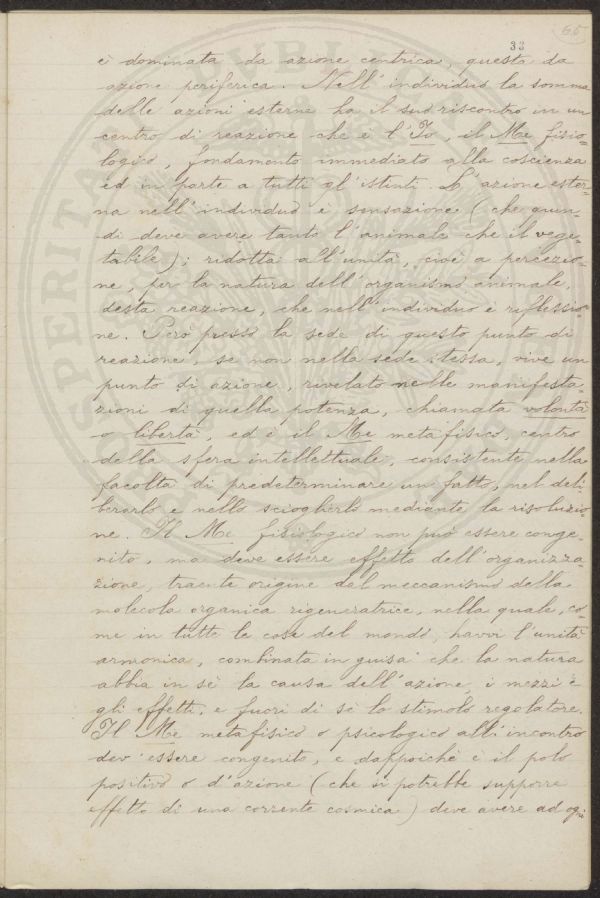 65
33
è dominata da azione centrica, questa da
azione periferica. Nell'individuo la somma
delle azioni esterne ha il suo riscontro in un
centro di reazione che è l'Io, il Me fisio-
logico, fondamento immediato alla coscienza
ed in parte a tutti gl'istinti. L'azione ester-
na nell'individuo è sensazione (che quin-
di deve avere tanto l'animale che il vege-
tabile); ridotta all'unità, cioè a percezio-
ne, per la natura dell'organismo animale,
desta reazione, che nell'individuo è riflessio-
ne. Però presso la sede di questo punto di
reazione, se non nella sede stessa, vive un
punto di azione, rivelato nelle manifesta-
zioni di quella potenza, chiamata volontà
o libertà, ed è il Me metafisico, centro
della sfera intellettuale, consistente nella
facoltà di predeterminare un fatto, nel deli-
berarlo e nello scioglierlo mediante la risoluzio-
ne. Il Me fisiologico non può essere conge-
nito, ma deve essere effetto dell'organizza-
zione, traente origine dal meccanismo della
molecola organica rigeneratrice, nella quale, co-
me in tutte le cose del mondo, havvi l'unità
armonica, combinata in guisa che la natura
abbia in sè la causa dell'azione, i mezzi e
gli effetti, e fuori di sè lo stimolo regolatore.
Il Me metafisico o psicologico all'incontro
dev'essere congenito, e dappoichè è il polo
positivo o d'azione (che si potrebbe supporre
effetto di una corrente cosmica) deve avere ad og-
PVBLIC
PROSPERITA